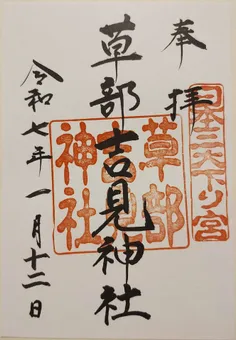 奉拝
日本三大下り宮
草部吉見神社
草部吉見神社
令和七年一月十二日